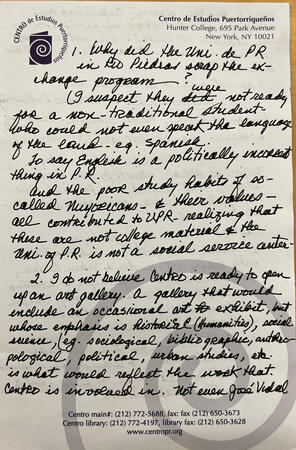 CENTRO de Estudios Puertorriqueños
Centro de Estudios Puertorriqueños
Hunter College, 695 Park Avenue
New York, NY 10021
1. Why did the Uni. de P.R
in Rio Piedras scrap the ex-
change program?
(I suspect they were not ready
for a non-traditional student
who could not even speak the language
of the land - eg. Spanish.
To say English is a politically incorrect
thing in P.R.
And the poor study habits of so-
called Nuyoricans - & their values -
all contributed to UPR realizing that
these are not college material & the
Uni. of P.R. is not a social service center.
2. I do not believe Centro is ready to open
up an art gallery. A gallery that would
include an occasional art exhibit, but
whose emphasis is historical (humanities), social
science, (eg. sociological, bibliographic, anthro-
pological, political, urban studies, etc.
is what would reflect the work that
Centro is involved in. Not even José Vidal
Centro main#: (212) 772-5688, fax: fax (212) 650-3673
Centro library: (212) 772-4197, library fax: (212) 650-3628
www.centropr.org